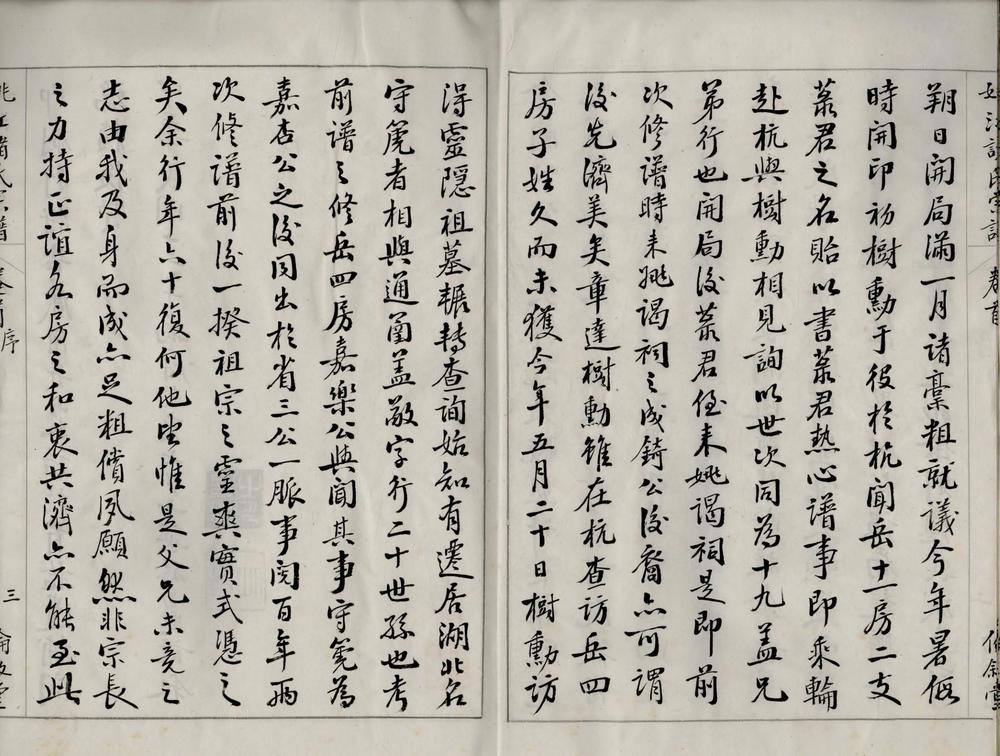 朔日開局滿一月諸稾粗就議今年暑假
時開印初樹勳于役於杭聞岳十一房二支
葇君之名貽以書葇君熱心譜事即乘輪
赴杭與樹勳相見詢以世次同為十九蓋兄
弟行也開局後葇君偕來姚謁祠是即前
次修譜時來姚謁祠之成錡公後裔亦可謂
後先濟美矣章達樹勳雖在杭查訪岳四
房子姓久而未獲今年五月二十日樹勳訪
得靈隱祖墓輾轉查詢始知有遷居湖北名
守箎者相與通函蓋敬字行二十世孫也考
前譜之修岳四房嘉樂公與聞其事守箎為
嘉杏公之後同出於省三公一脈事閱百年兩
次修譜前後一揆祖宗之靈爽實式憑之
矣余行年六十復何他望惟是父兄未竟之
志由我及身而成亦足粗償夙願然非宗長
之力持正誼各房之和衷共濟亦不能至此
序
三